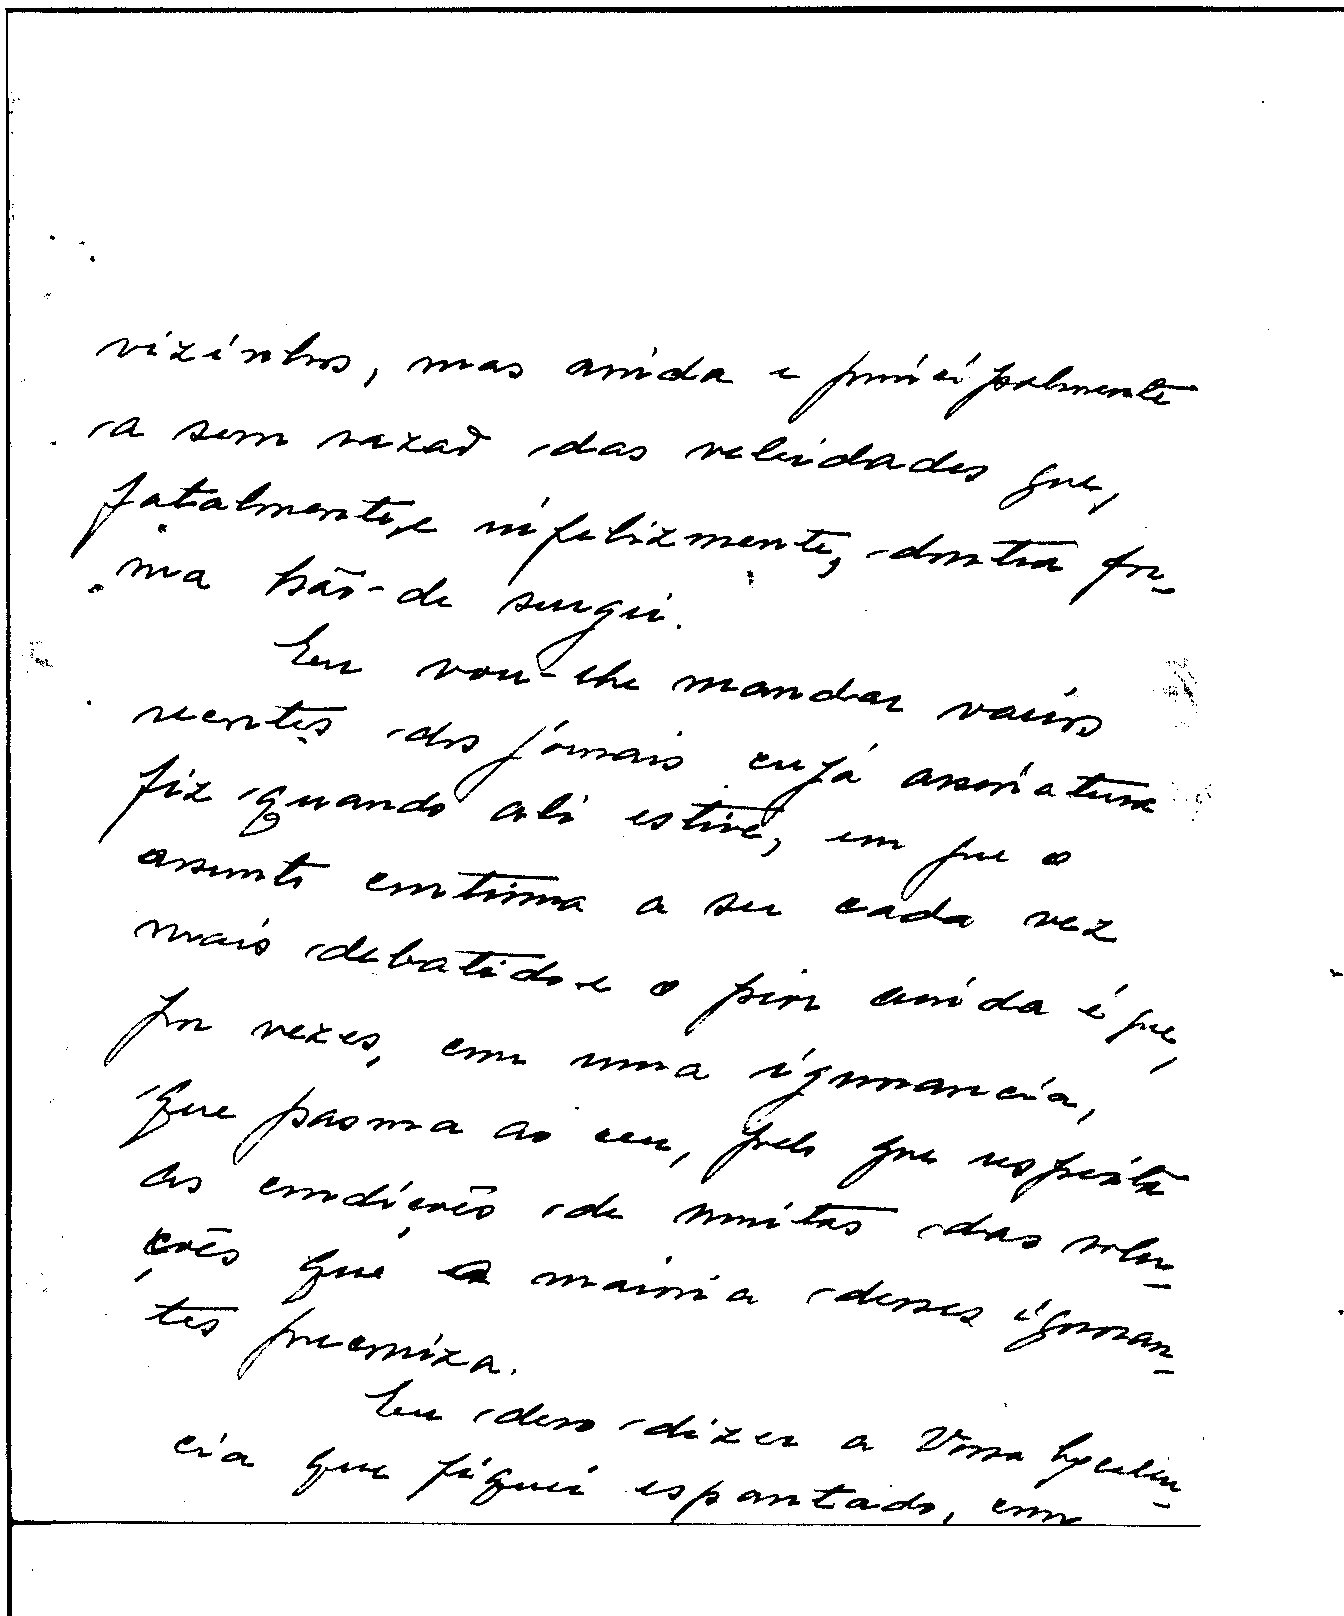 vizinhos, mas ainda e principalmente
a sem razaõ das veleidades que,
fatalmente, e infelizmente, doutra for-
ma hão-de surgir.
Eu vou-lhe mandar varios
recortes dos jornais cuja assinatura
fiz quando ali estive, em que o
assunto continua a ser cada vez
mais debatido e o pior ainda é que,
por vezes, com uma ignorancia,
que pasma ao ceu, pelo que respeita
as condições de muitas das solu-
ções que a maioria desses ignoran-
tes preconiza.
Eu devo dizer a Vossa Excelen-
cia que fiquei espantado, com